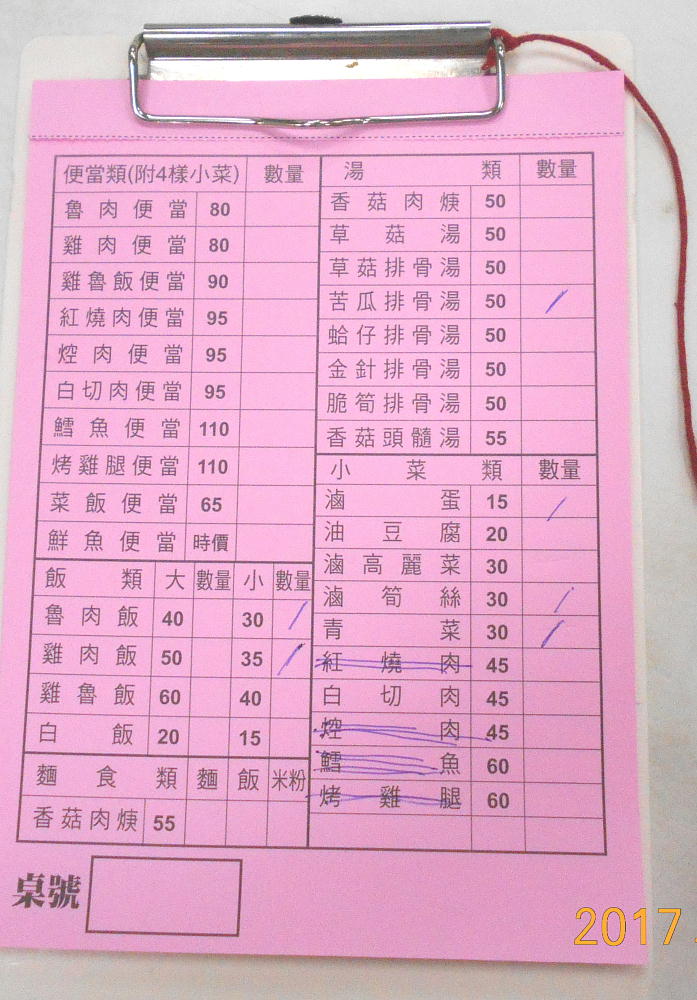 便當類(附4樣小菜) 數量
魯肉便當 80
雞肉便當 80
雞魯飯便當 90
紅燒肉便當 95
焢肉便當 95
白切肉便當 95
鱈魚便當 110
烤雞腿便當 110
菜飯便當 65
鮮魚便當 時價
飯類 大 數量 小 數量
魯肉飯 40 30
雞肉飯 50 35
雞魯飯 60 40
白飯 20 15
麵食類 麵 飯 米粉
香菇肉焿 55
湯類 數量
香菇肉焿 50
草菇湯 50
草菇排骨湯 50
苦瓜排骨湯 50
蛤仔排骨湯 50
金針排骨湯 50
脆筍排骨湯 50
香菇頭髓湯 55
小菜類 數量
滷蛋 15
油豆腐 20
滷高麗菜 30
滷筍絲 30
青菜 30
紅燒肉 45
白切肉 45
焢肉 45
鱈魚 60
烤雞腿 60
桌號
2017